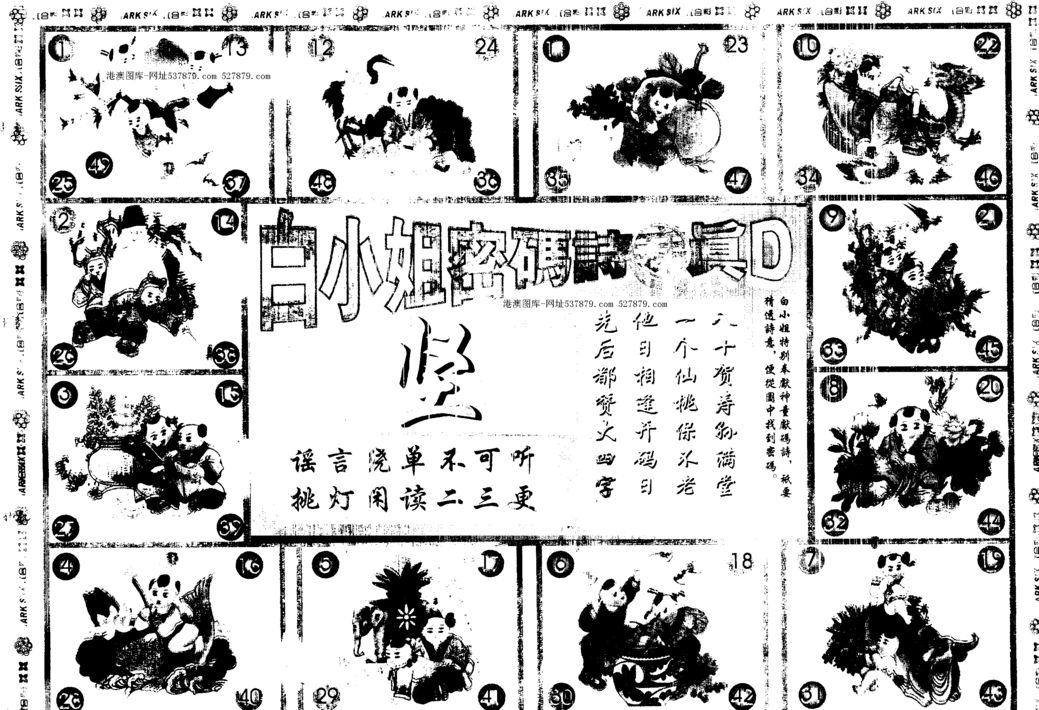 ARK SIX
1 13 25 37 49
港澳图库-网址537879.com 527879.com
12 24 48 36
11 23 35 47
10 22 34 46
2 14 26 38
白小姐密碼詩 真D
港澳图库-网址537879.com 527879.com
9 21 33 45
白小姐特别奉献神童献碼詩，祇要
精选詩意，便從圖中找到密碼。
八十贺寿物满堂
一个仙桃保不老
他日相逢开码日
先后都赞大四字
坚
谣言浇单不可听
挑灯闲读二三更
3 15 27 39
8 20 32 44
4 16 28 40
5 17 29 41
6 18 30 42
7 19 31 43